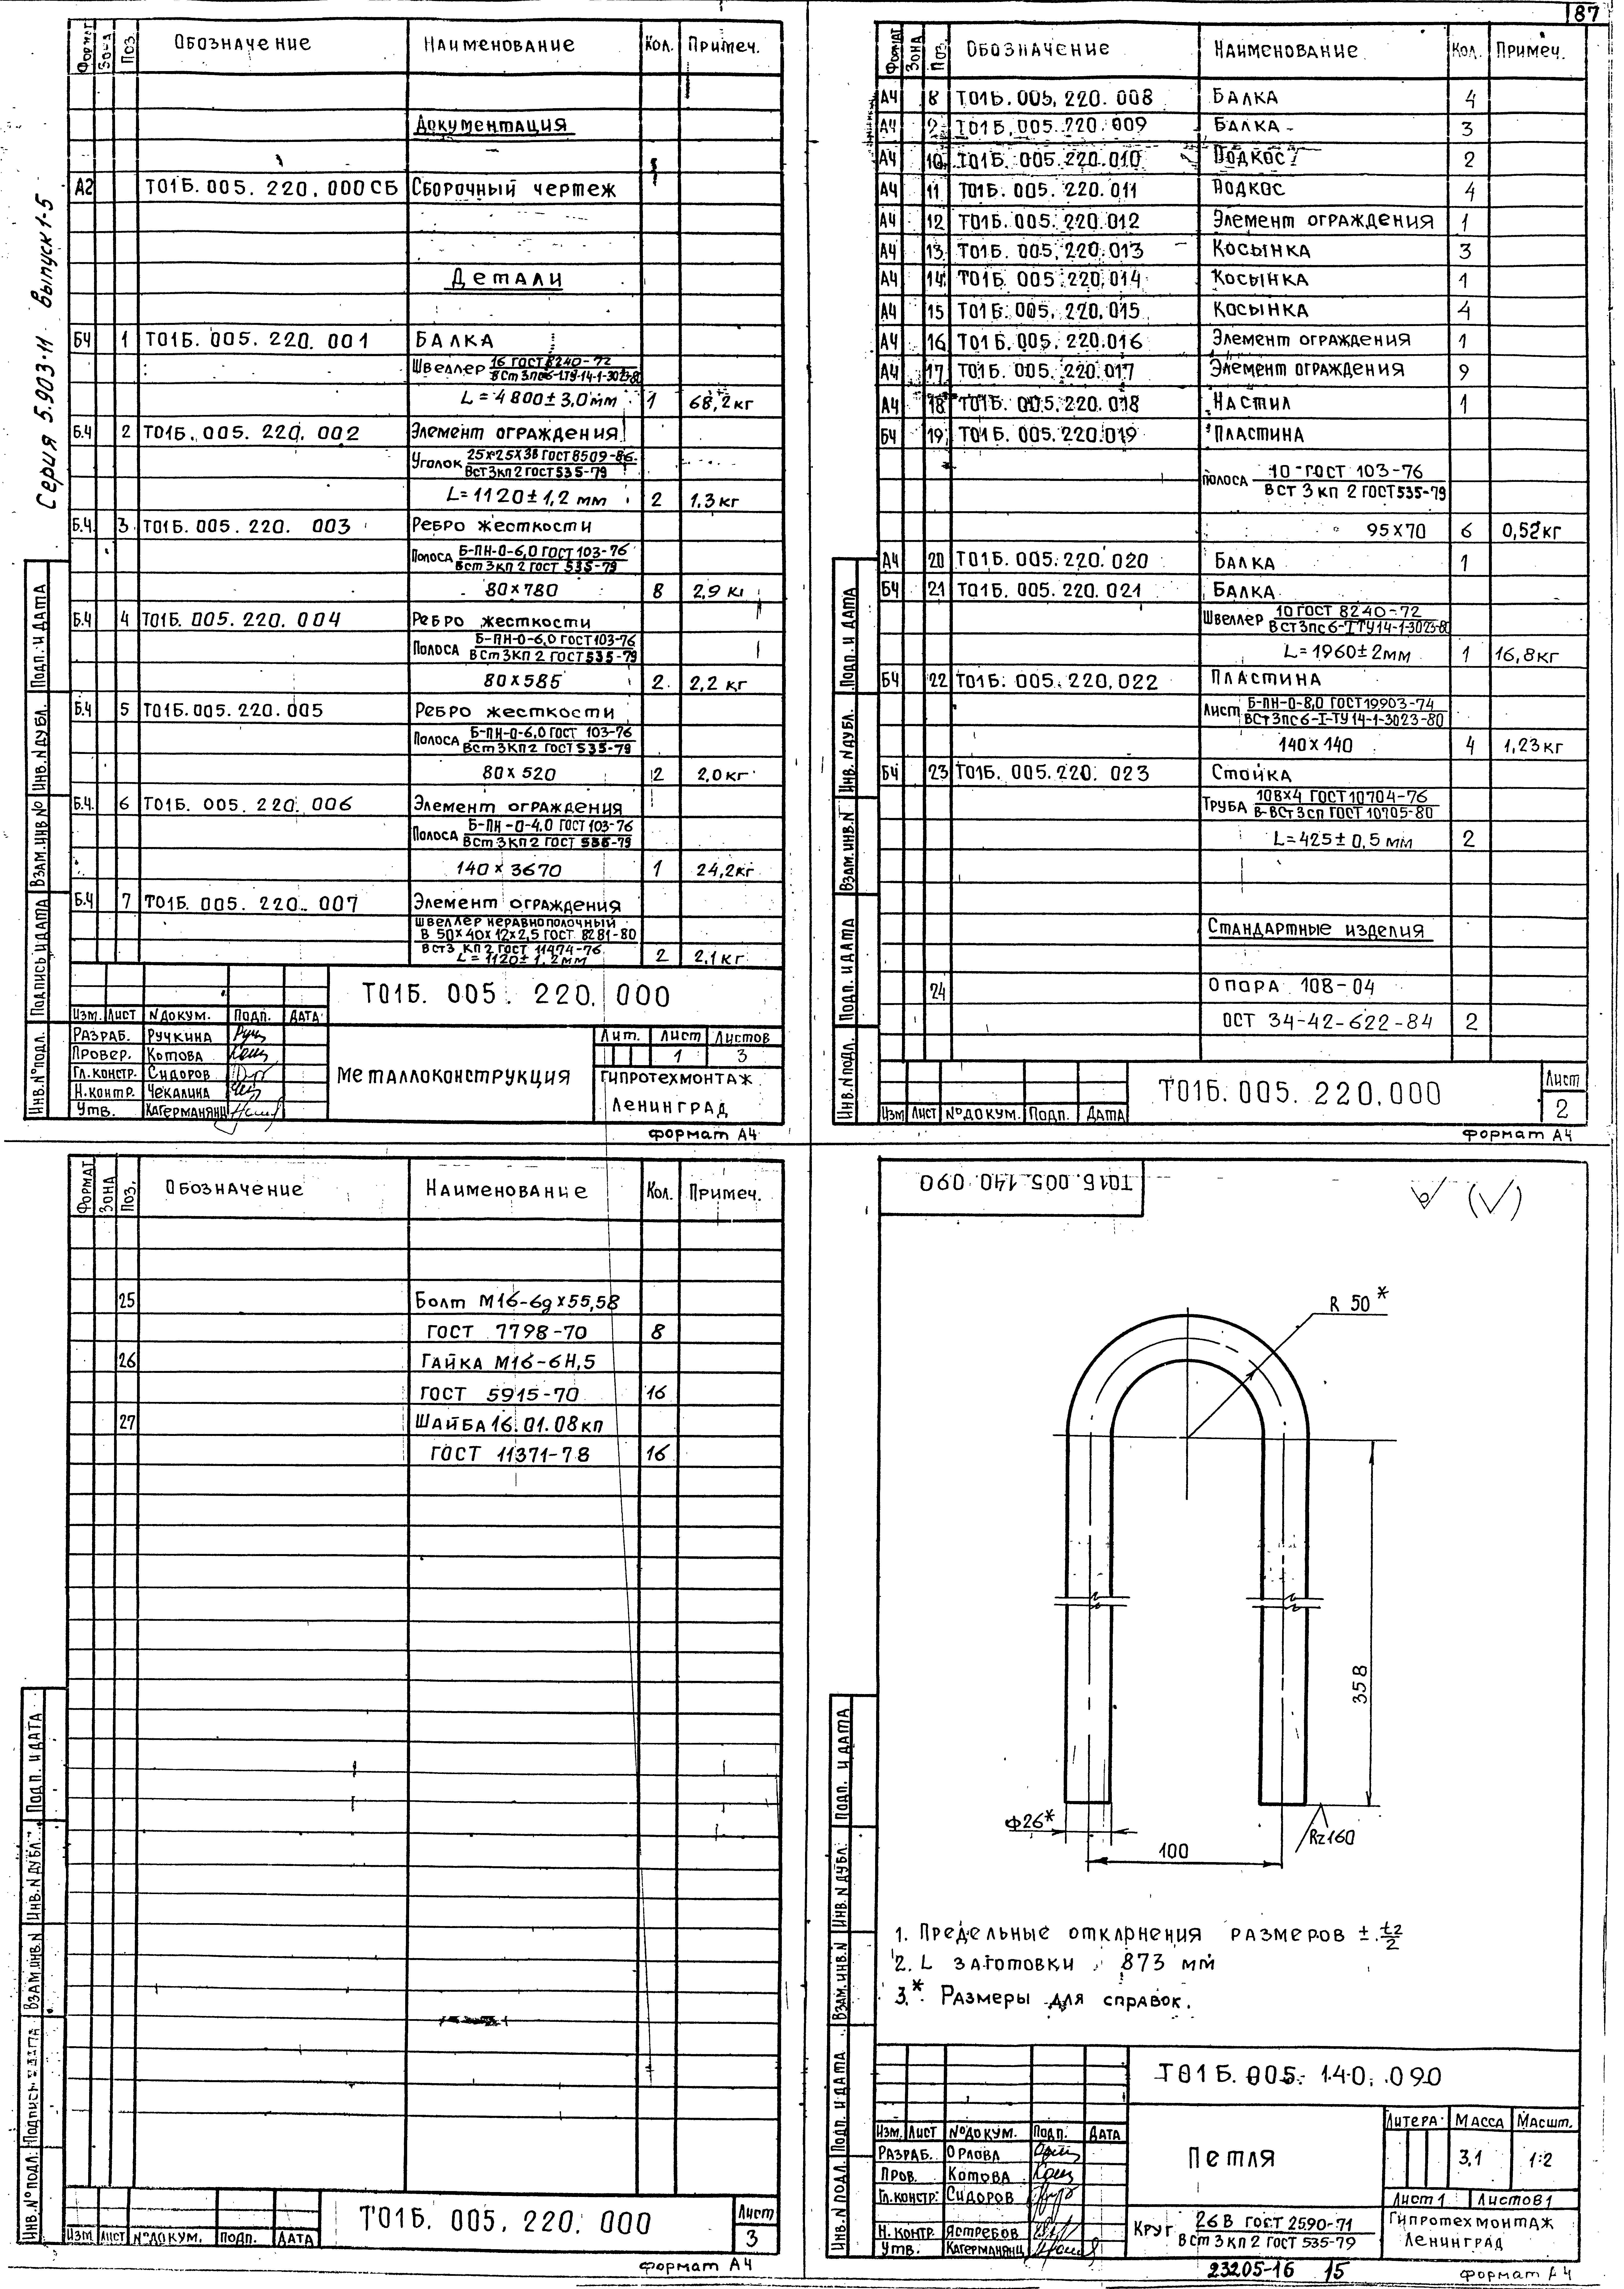 87
Серия 5.903-11 Выпуск 1-5
Формат Зона Поз. Обозначение Наименование Кол. Примеч.
Документация
А2 Т01Б.005.220.000СБ Сборочный чертеж
Детали
БЧ 1 Т01Б.005.220.001 Балка
Швеллер 16 ГОСТ 8240-72
ВСт3пс6-1ТУ-14-1-3023-80
L=4800±3,0мм 1 68,2кг
Б.Ч 2 Т01Б.005.220.002 Элемент ограждения
Уголок 25х25х3В ГОСТ 8509-86
ВСт3кп2 ГОСТ 535-79
L=1120±1,2 мм 2 1,3кг
Б.Ч. 3 Т01Б.005.220.003 Ребро жесткости
Полоса Б-ПН-О-6,0 ГОСТ 103-76
ВСт3кп2 ГОСТ 535-79
80х780 8 2,9 кг
Б.Ч 4 Т01Б.005.220.004 Ребро жесткости
Полоса Б-ПН-О-6,0 ГОСТ 103-76
ВСт3кп2 ГОСТ 535-79
80х585 2 2,2 кг
Б.Ч 5 Т01Б.005.220.005 Ребро жесткости
Полоса Б-ПН-О-6,0 ГОСТ 103-76
ВСт3кп2 ГОСТ 535-79
80х520 2 2,0кг
Б.Ч. 6 Т01Б.005.220.006 Элемент ограждения
Полоса Б-ПН-О-4,0 ГОСТ 103-76
ВСт3кп2 ГОСТ 535-79
140х3670 1 24,2кг
Б.Ч 7 Т01Б.005.220.007 Элемент ограждения
Швеллер неравнополочный
В 50х40х12х2,5 ГОСТ 8281-80
ВСт3кп2 ГОСТ 11474-76
L=1120±1,2мм 2 2,1кг
Т01Б.005.220.000
Изм. Лист N докум. Подп. Дата
Разраб. Ручкина
Провер. Котова
Гл.констр. Сидоров
Н.контр. Чекалина
Утв. Кагерманянц
Металлоконструкция
Лит. Лист Листов
1 3
Гипротехмонтаж
Ленинград
Инв.№подл. Подпись и дата Взам.инв№ Инв.Nдубл. Подп. и дата
Формат А4
Формат Зона Поз. Обозначение Наименование Кол. Примеч.
А4 8 Т01Б.005.220.008 Балка 4
А4 9 Т01Б.005.220.009 Балка 3
А4 10 Т01Б.005.220.010 Подкос 2
А4 11 Т01Б.005.220.011 Подкос 4
А4 12 Т01Б.005.220.012 Элемент ограждения 1
А4 13 Т01Б.005.220.013 Косынка 3
А4 14 Т01Б.005.220.014 Косынка 1
А4 15 Т01Б.005.220.015 Косынка 4
А4 16 Т01Б.005.220.016 Элемент ограждения 1
А4 17 Т01Б.005.220.017 Элемент ограждения 9
А4 18 Т01Б.005.220.018 Настил 1
БЧ 19 Т01Б.005.220.019 Пластина
Полоса 10-ГОСТ 103-76
ВСт3кп2 ГОСТ 535-79
95х70 6 0,52кг
А4 20 Т01Б.005.220.020 Балка 1
БЧ 21 Т01Б.005.220.021 Балка
Швеллер 10 ГОСТ 8240-72
ВСт3пс6-I ТУ14-1-3023-80
L=1960±2мм 1 16,8кг
БЧ 22 Т01Б.005.220.022 Пластина
Лист Б-ПН-О-8,0 ГОСТ19903-74
ВСт3пс6-I-ТУ14-1-3023-80
140х140 4 1,23кг
БЧ 23 Т01Б.005.220.023 Стойка
Труба 108х4 ГОСТ 10704-76
В-ВСт3сп ГОСТ 10705-80
L=425±0,5мм 2
Стандартные изделия
24 Опора 108-04
ОСТ 34-42-622-84 2
Изм Лист №докум. Подп. Дата
Т01Б.005.220.000
Лист
2
Инв.№подл. Подп. и дата Взам.инв.N Инв.Nдубл. Подп. и дата
Формат А4
Формат Зона Поз. Обозначение Наименование Кол. Примеч.
25 Болт М16-6gх55,58
ГОСТ 7798-70 8
26 Гайка М16-6Н,5
ГОСТ 5915-70 16
27 Шайба 16.01.08кп
ГОСТ 11371-78 16
Изм Лист №докум. Подп. Дата
Т01Б.005.220.000
Лист
3
Инв.№подл. Подпись и дата Взам.инв.N Инв.Nдубл. Подп. и дата
Формат А4
Т01Б.005.140.090
R 50*
358
Ф26*
100
Rz160
1. Предельные отклонения размеров ± t2/2
2. L заготовки 873 мм
3.* Размеры для справок.
Т01Б.005.140.090
Изм. Лист №докум. Подп. Дата
Разраб. Орлова
Пров. Котова
Гл.констр. Сидоров
Н.контр Ястребов
Утв. Кагерманянц
Петля
Литера Масса Масшт.
3,1 1:2
Лист 1 Листов 1
Круг 26В ГОСТ 2590-71
ВСт3кп2 ГОСТ 535-79
Гипротехмонтаж
Ленинград
Инв.Nподл. Подп. и дата Взам.инв.N Инв.Nдубл. Подп. и дата
23205-16 15
Формат А4